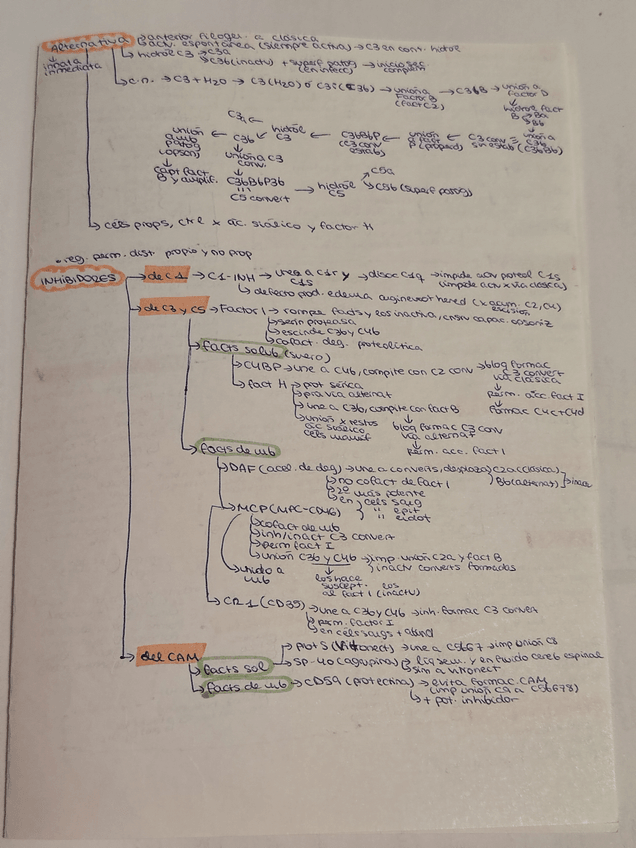 Alternativa → anterior filogen. a clásica
→ activ. espontánea (siempre activa) → C3 en cont. hidrol
innata
inmediata
→ hidról C3 → C3a
→ C3b (inactv) + superf patog (en infecc) → inicio
→ C3 + H2O → C3(H2O) ó C3i → unión a Factor B (fact C2) → C3bB → unión a Factor D
hidról fact B → Ba
→ Bb
unión a C3b (C3bBb)
C3 conv sin estab
← unión a fact P (properd) ← C3bBbP (C3 conv estab) ← hidról C3 ← C3b
C3a
unión a mb patog (opson)
capt fact B y amplif.
unión a C3 conv.
C3bBbP3b
C5 convert
→ hidról C5
C5a
C5b (superf patog)
→ céls props, ctrl x ác. siálico y factor H
• reg. perm. dist. propio y no prop
INHIBIDORES
→ de C1 → C1-INH → une a C1r y C1s → disoc C1q → impide activ proteol C1s (impide activ x vía clásica)
→ defecto prod. edema angineurót hered (x acum. C2, C4)
escisión
→ de C3 y C5 → Factor I → rompe facts y los inactiva, capac. opsoniz
→ serín proteasa
→ escinde C3b y C4b
→ cofact. deg. proteolítica
→ facts solub (suero)
→ C4BP → une a C4b, compite con C2 → bloq formac C3 convert vía clásica
perm. acc. fact I
formac C4c + C4d
→ fact H → prot sérica
→ para vía alternat
→ une a C3b, compite con fact B
bloq formac C3 conv vía alternat
perm. acc. fact I
→ unión x restos ác siálico céls mamíf
→ facts de mb
→ DAF (acel. de deg) → une a converts, desplaza C2a (clásica)
Bb (alternat)
→ no cofact de fact I
→ más potente
→ en céls sang
" epit
" endot
→ MCP (MPC-CD46)
→ cofact de mb
→ inh/inact C3 convert
→ perm fact I
→ unión C3b y C4b → imp. unión C2a y fact B
inactv converts formadas
los hace suscept. al fact I (inactv)
→ unido a mb
→ CR1 (CD35) → une a C3b y C4b → inh. formac C3 convert
→ perm. factor I
→ en céls sangs
→ del CAM
→ facts sol
→ prot S (Vitronect) → une a C5b67 → imp unión C8
→ SP-40 → líq sem. y en fluido cereb espinal
sim a vitronect
→ facts de mb → CD59 (protectina) → evita formac CAM (imp unión C9 a C5b678)
→ + pot. inhibidor